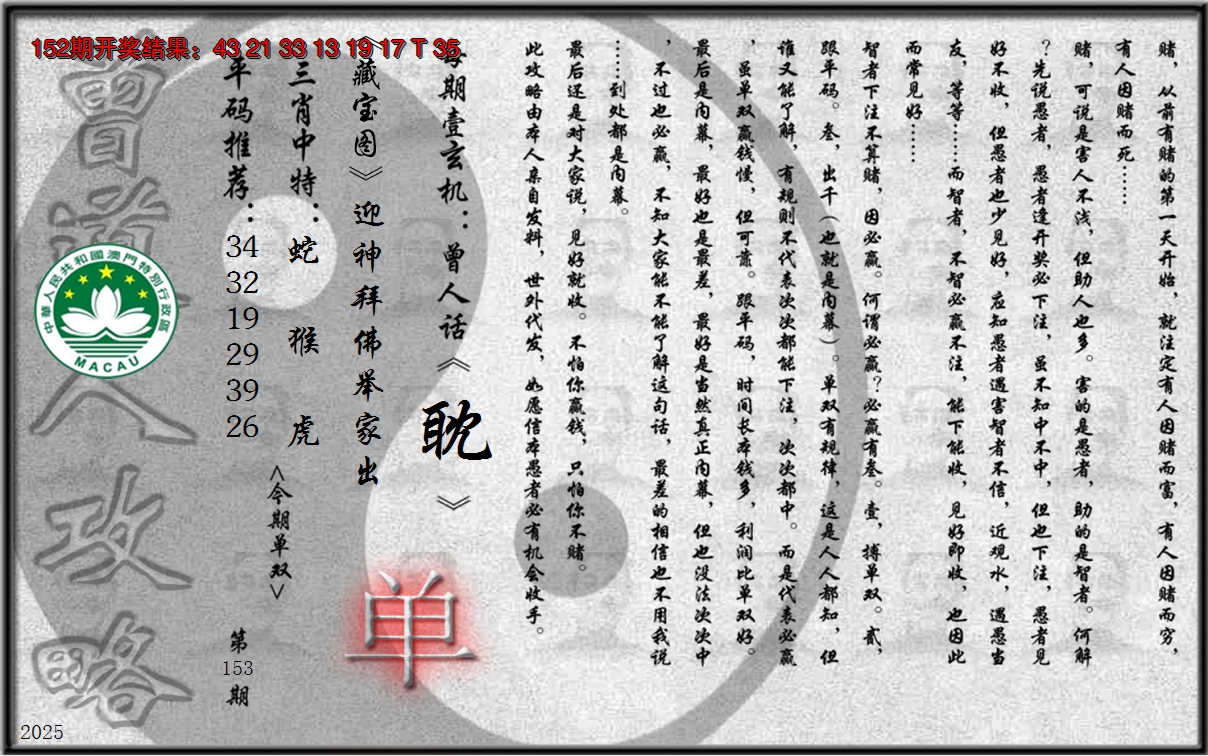 152期开奖结果：43 21 33 13 19 17 T 35
赌，从前有赌的第一天开始，就注定有人因赌而富，有人因赌而穷，
有人因赌而死……
赌，可说是害人不浅，但助人也多。害的是愚者，助的是智者。何解
？先说愚者，愚者逢开奖必下注，虽不知中不中，但也下注，愚者见
好不收，但愚者也少见好，应知愚者遇害智者不信，近观水，遇愚当
友，等等……而智者，不智必赢不注，能下能收，见好即收，也因此
而常见好……
智者下注不算赌，因必赢。何谓必赢？必赢有叁。壹，搏单双。贰，
跟平码。叁，出千（也就是内幕）。单双有规律，这是人人都知，但
谁又能了解，有规则不代表次次都能下注，次次都中。而是代表必赢
，虽单双赢钱慢，但可靠。跟平码，时间长本钱多，利润比单双好。
最后是内幕，最好也是最差，最好是当然真正内幕，但也没法次次中
，不过也必赢，不知大家能不能了解这句话，最差的相信也不用我说
……到处都是内幕。
最后还是对大家说，见好就收。不怕你赢钱，只怕你不赌。
此攻略由本人亲自发料，世外代发，如愿信本愚者必有机会收手。
每期壹玄机：曾人话《耽》
《藏宝图》迎神拜佛举家出
单
三肖中特：蛇 猴 虎
<今期单双>
平码推荐：34 32 19 29 39 26
第153期
曾道人攻略
中華人民共和國澳門特別行政區
MACAU
2025